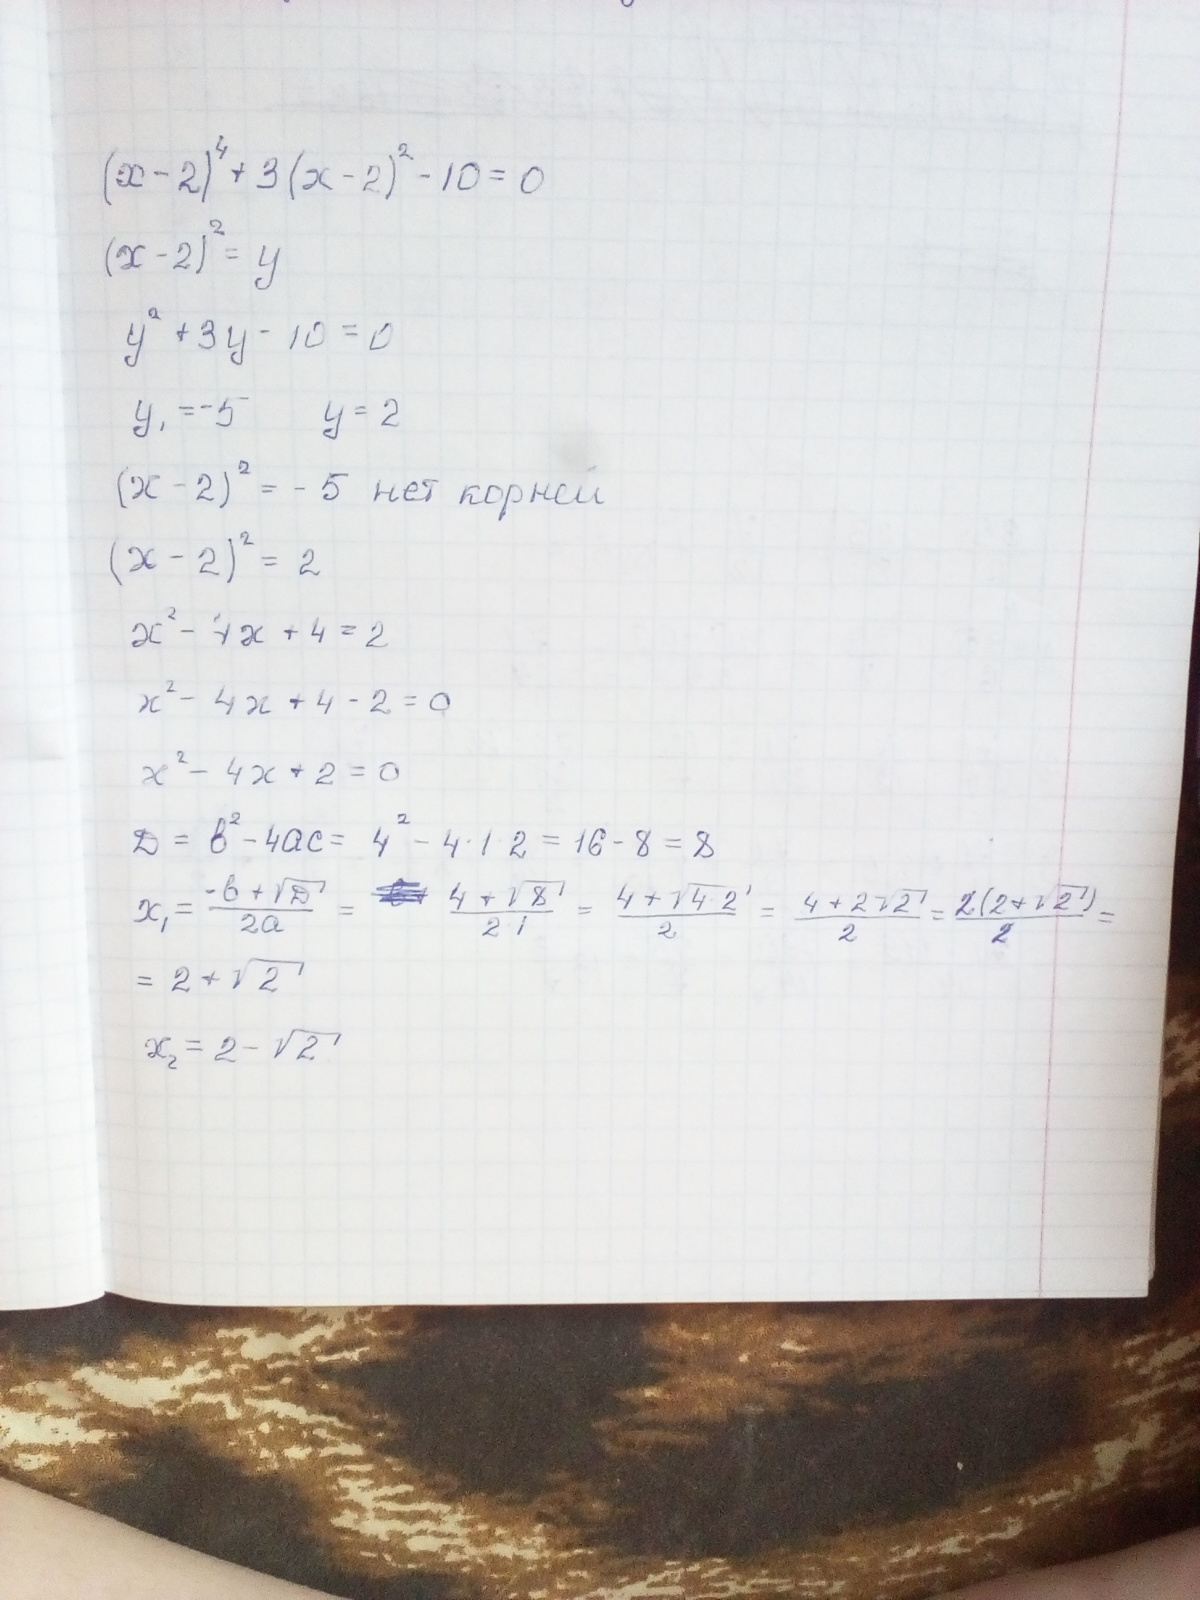 (x-2)⁴+3(x-2)²-10=0
(x-2)²=y
y²+3y-10=0
y₁=-5 y=2
(x-2)²=-5 нет корней
(x-2)²=2
x²-4x+4=2
x²-4x+4-2=0
x²-4x+2=0
D=b²-4ac=4²-4·1·2=16-8=8
x₁=(-b+√D)/2a=(4+√8)/2·1=(4+√4·2)/2=(4+2√2)/2=2(2+√2)/2=
=2+√2
x₂=2-√2